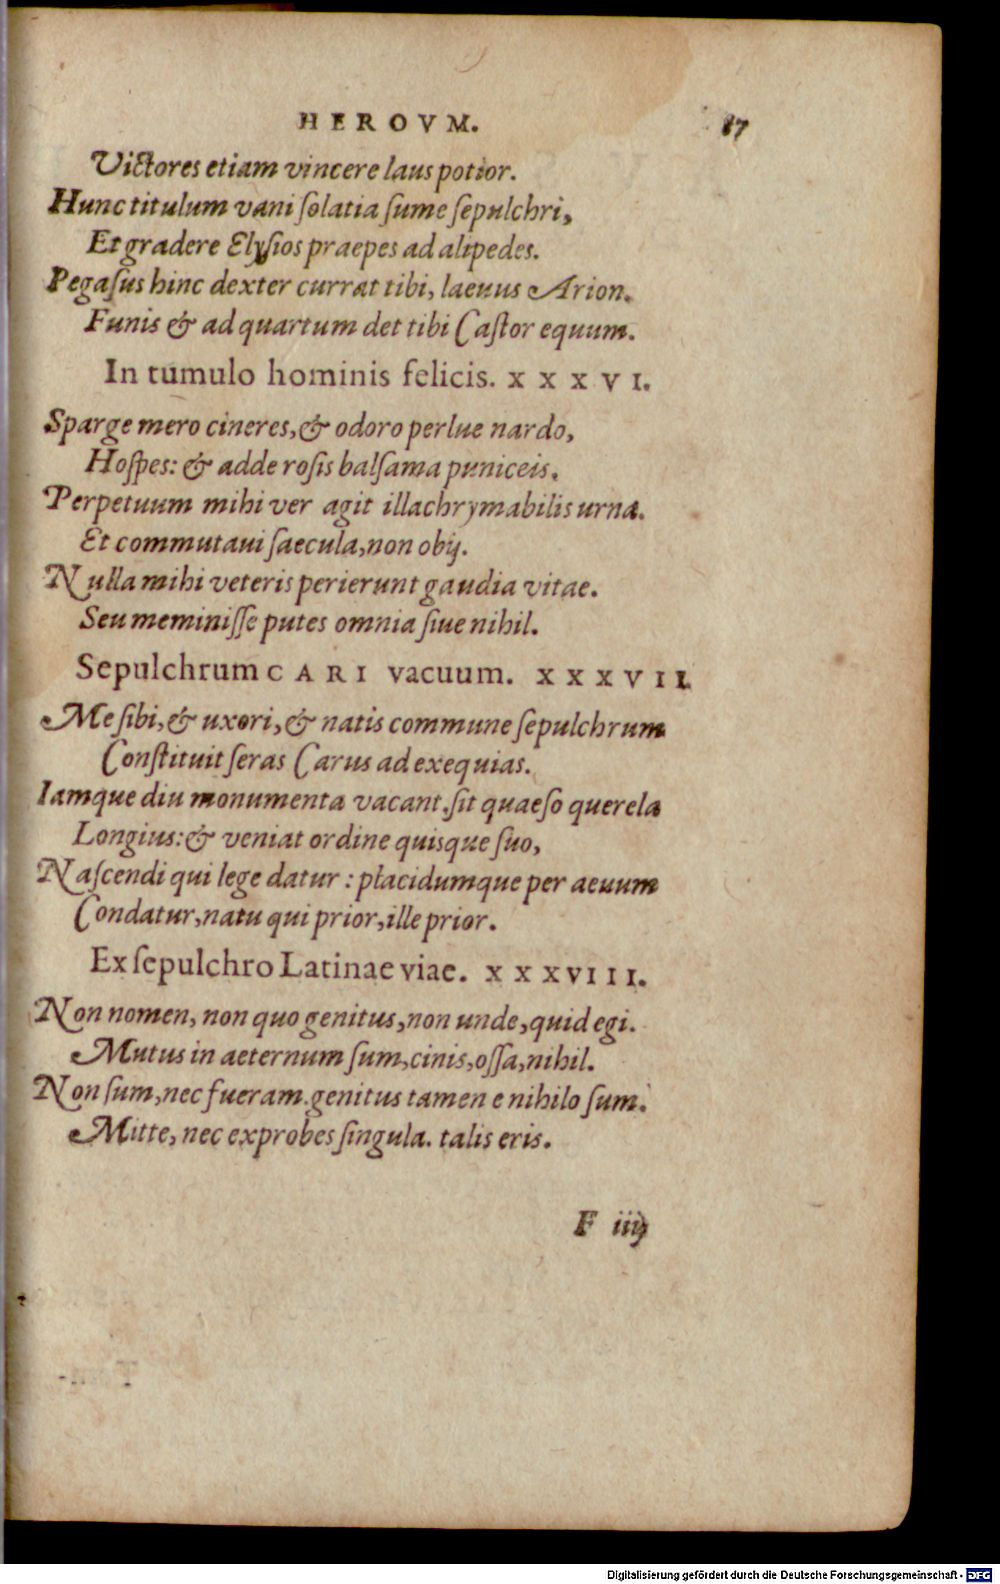 HEROVM. 87
Victores etiam vincere laus potior.
Hunc titulum vani ſolatia ſume ſepulchri,
Et gradere Elyſios praepes ad alipedes.
Pegaſus hinc dexter currat tibi, laeuus Arion.
Funis & ad quartum det tibi Caſtor equum.
In tumulo hominis felicis. XXXVI.
Sparge mero cineres, & odoro perlue nardo,
Hoſpes: & adde roſis balſama puniceis.
Perpetuum mihi ver agit illachrymabilis urna.
Et commutaui ſaecula, non obij.
Nulla mihi veteris perierunt gaudia vitae.
Seu meminiſſe putes omnia ſiue nihil.
Sepulchrum CARI vacuum. XXXVII.
Me ſibi, & uxori, & natis commune ſepulchrum
Conſtituit ſeras Carus ad exequias.
Iamque diu monumenta vacant. ſit quaeſo querela
Longius: & veniat ordine quisque ſuo,
Naſcendi qui lege datur: placidumque per aeuum
Condatur, natu qui prior, ille prior.
Ex ſepulchro Latinae viae. XXXVIII.
Non nomen, non quo genitus, non unde, quid egi.
Mutus in aeternum ſum, cinis, oſſa, nihil.
Non ſum, nec fueram. genitus tamen e nihilo ſum.
Mitte, nec exprobes ſingula. talis eris.
F iiij
Digitalisierung gefördert durch die Deutsche Forschungsgemeinschaft - DFG